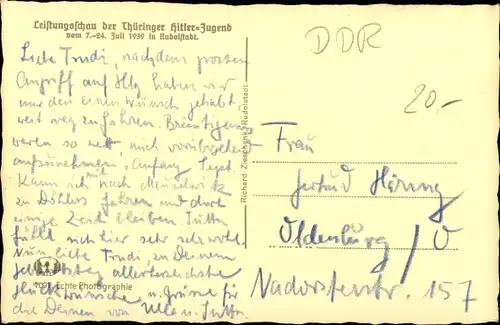 Leistungsschau der Thüringer Hitler-Jugend
vom 7.-24. Juli 1939 in Rudolstadt.
Liebe Trudi, nachdem grossen
Angriff auf Hbg haben wir
nur den einen Wunsch gehabt
weit weg zu fahren.
waren so nett, mich vorübergehend
aufzunehmen. Anfang Sept.
kann ich mit nach Meuselwitz
zu fahren und dort
einige Zeit bleiben. Jutta
fühlt sich hier sehr sehr wohl.
Nun liebe Trudi, zu Deinem
Geburtstag allerherzlichste
Glückwünsche u. Grüsse für
die Deinen von u. Jutta
Echte Photographie
Richard Zieschank, Rudolstadt
DDR
20,-
Frau
Gertrud Höring
Oldenburg / O
Nadorsterstr. 157